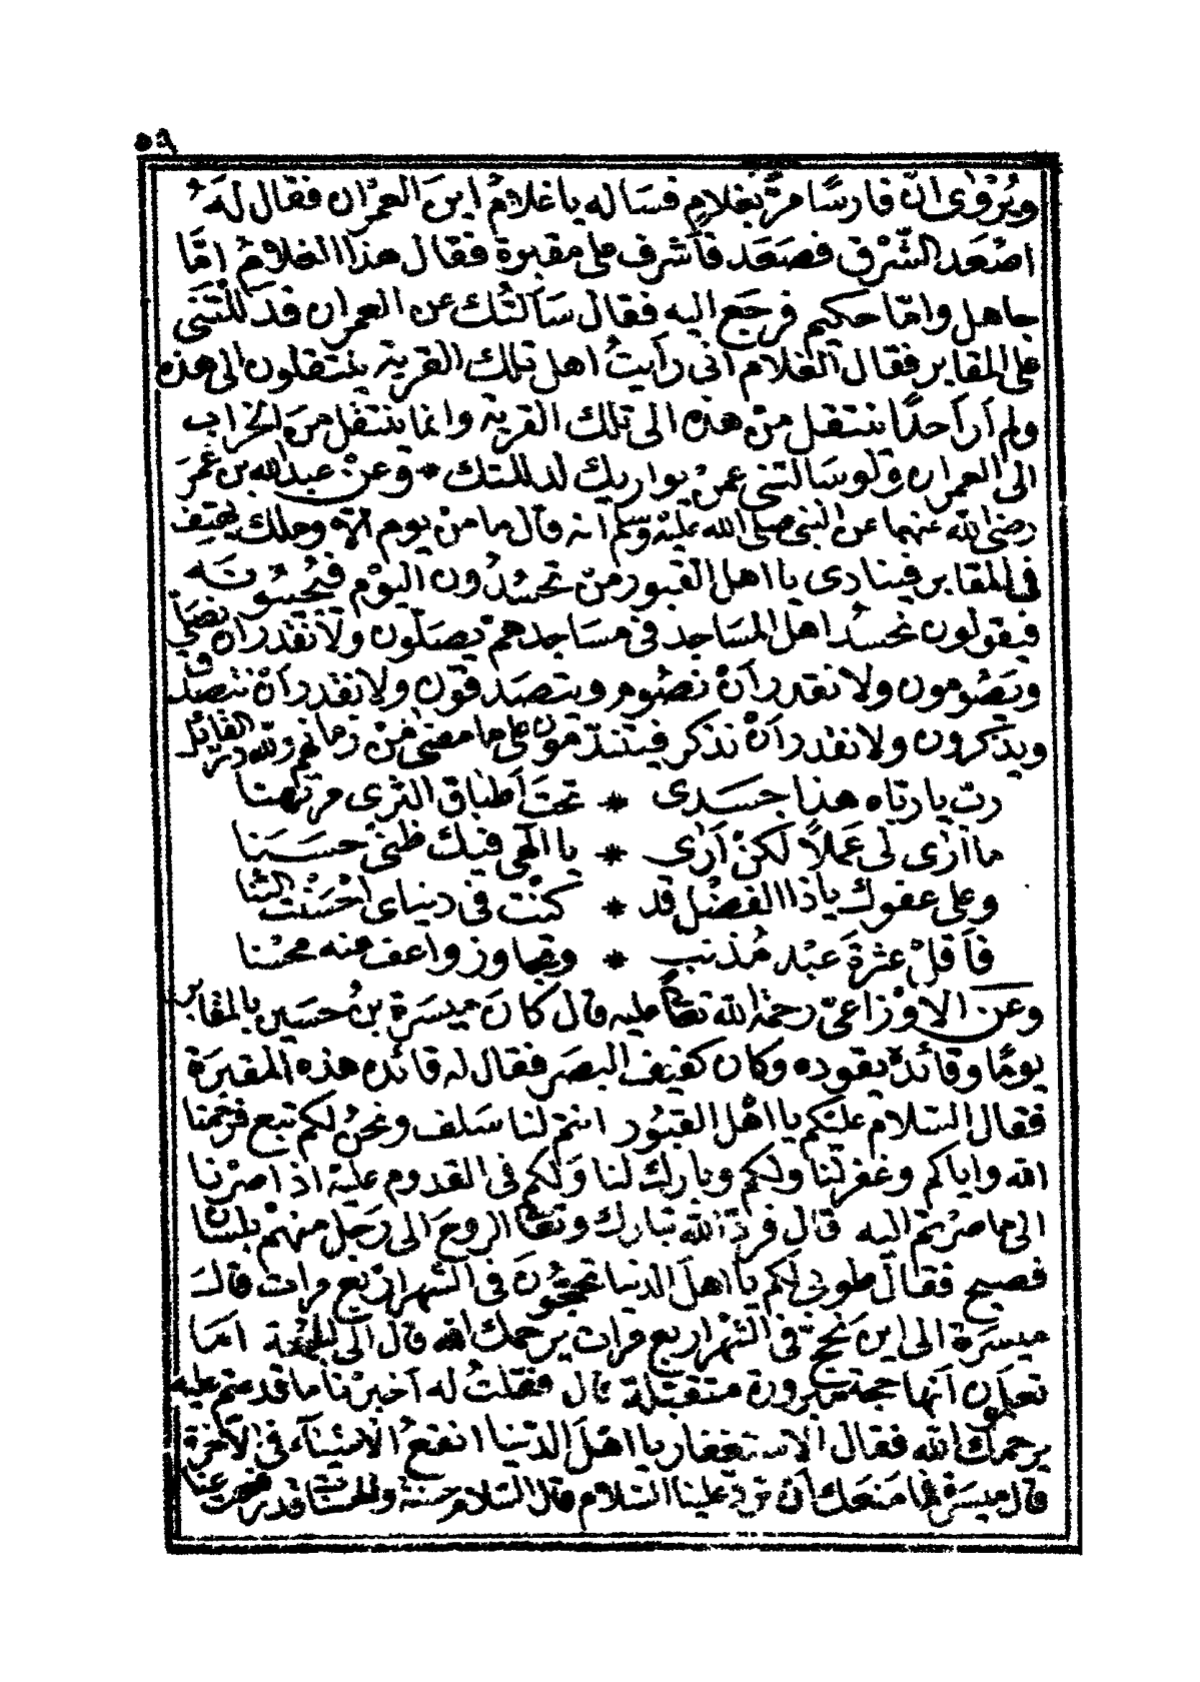 ٥٩
ويُرْوٰى انّ فارسًا مرَّ بغلامٍ فسَاله يا غلامُ اينَ العمْران فقال لهُ
اصْعَد الشّرْف فصَعَد فأشرف على مقبرة فقال هذا الغلامُ امّا
جاهل وامّا حكيم فرجَع اليه فقال سَألتُك عن العمران فدَللْتَنى
على المقابر فقال الغلام انى رأيتُ اهل تلك القرية ينتقلون الى هذه
ولم أرَ أحدًا ينتقل منْ هذه الى تلك القرية وانما ينتقل منَ الخراب
الى العمران ولو سَالتنى عمنْ يواريك لدللتك * وعنْ عبد الله بن عُمَرَ
رضى الله عنهما عن النبى صلى الله عليْه وسلم انه قال ما منْ يوم الا وملك يهتِف
فى المقابر فينادى يا اهل القبور منْ تحسُدُون اليوْم فيُحسُوتَه
فيقولون نحسُد اهل المسَاجد فى مسَاجدهمْ يُصَلّون ولا نقْدر انْ نصَلّى
ويَصُومون ولا نقدر أنْ نصُوم ويتصَدقون ولا نقدر أنْ نتصَدق
ويذكرون ولا نقدر أنْ نذكر فيتندّمون على ما مضىٰ منْ زمانهم ولله درّ القائل
ربّ يا ربّاه هذا جَسَدى * تحتَ أطباق الثرى مرْتهنا
ما ارٰى لى عَملاً لكنْ أرٰى * يا الهى فيك ظنّى حسَنا
وعلى عفوك ياذا الفضْل قد * كنْت فى دنياى احْسَنْت الثنا
فأقلْ عثرةَ عبْد مُذنب * وتجاوز واعف عنه محْسنا
وعن الاوزاعىّ رحمة الله تعالى عليه قال كانَ ميسَرة بنُ حسَين بالمقابر
يومًا وقائدهُ يقوده وكان كفيف البصَر فقال له قائده هذه المقبَرة
فقال السّلام عليْكم يا اهْل القبُور انتمْ لنا سَلف ونحْنُ لكم تبع فرحمنا
الله واياكم وغفر لنا ولكم وبارك لنا ولكم فى القدوم عليْه اذا صرْنا
الى ما صرْتم اليه قال فردّ الله تبارك وتعالى الروحَ الى رَجل منهمْ بلسَان
فصيح فقال طوبى لكم يا اهلَ الدنيا تحجّونَ فى الشهر ارْبع مرات قال
ميسَرة الى اينَ نحجّ فى الشهْر اربع مرات يرحمك الله قال الى الجُمْعة امَا
تعلمون انّها حجة مبرورة متقبّلة قال فقلتُ له أخبرْنا ما قدمتم عليه
يرحمك الله فقال الاستغفار يا اهلَ الدّنيا انفعُ الاشيَآء فى الآخرة
قال ميسَرة فما منَعَك أنْ تردّ علينا السّلام قال السّلام حسَنة والحسَنات قد رفعت عنا